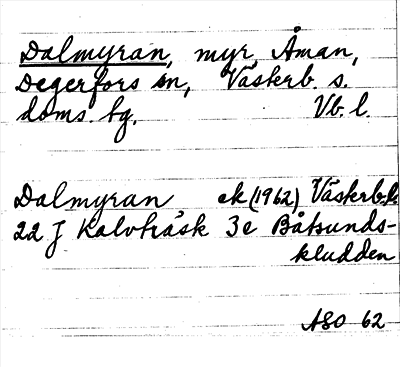 Dalmyran, myr, Åman,
Degerfors sn, Västerb. s.
doms. tg. Vb. l.
Dalmyran ek (1962) Västerb. l.
22 J Kalvträsk 3e Båtsunds-
kludden
ASO 62